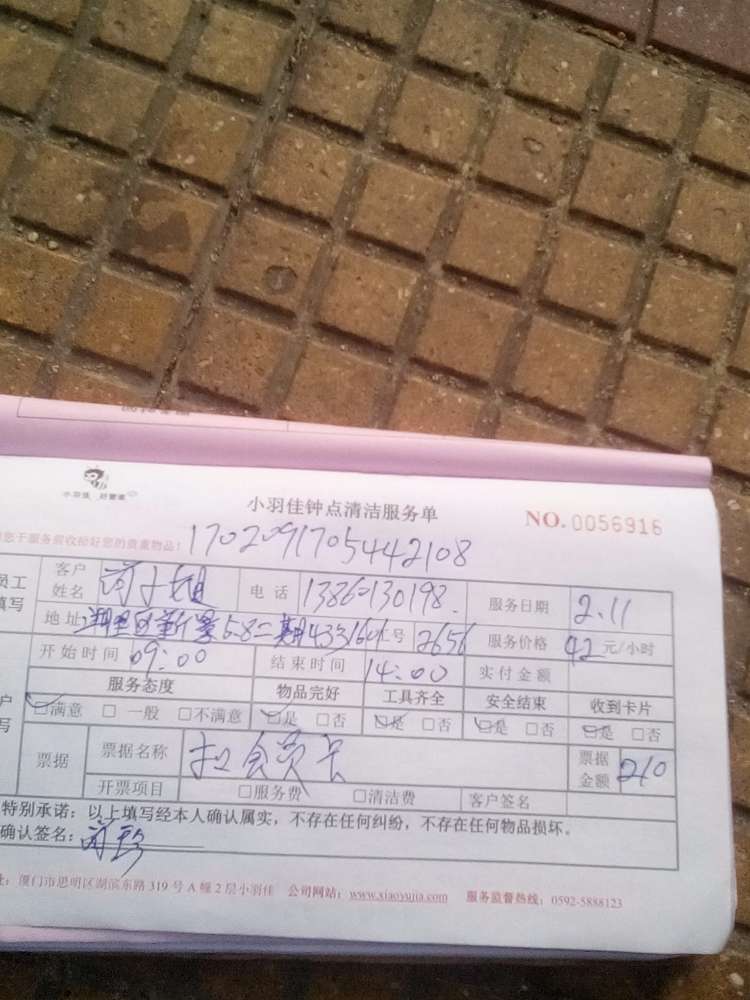 小羽佳 好管家
小羽佳钟点清洁服务单
NO. 0056916
您于服务前收拾好您的贵重物品!
1702091705442108
员工填写 客户姓名 小姐 电话 13860130198. 服务日期 2.11
地址 湖里区 58二期433 1601 工号 2656 服务价格 42 元/小时
开始时间 09:00 结束时间 14:00 实付金额
服务态度 物品完好 工具齐全 安全结束 收到卡片
☑满意 □一般 □不满意 ☑是 □否 ☑是 □否 ☑是 □否 ☑是 □否
票据 票据名称 扣会员卡 票据金额 210
开票项目 □服务费 □清洁费 客户签名
特别承诺:以上填写经本人确认属实,不存在任何纠纷,不存在任何物品损坏。
确认签名:
址:厦门市思明区湖滨东路 319 号 A 幢 2 层小羽佳 公司网站:www.xiaoyujia.com 服务监督热线:0592-5888123